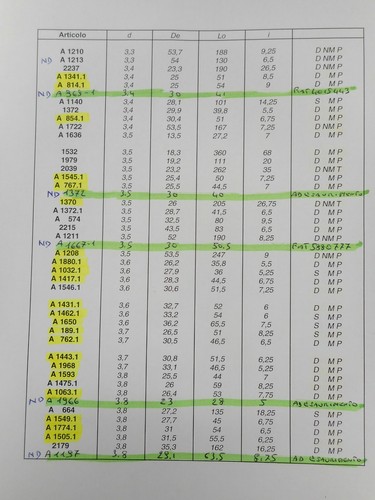 Articolo d De Lo i
A 1210 3,3 53,7 188 9,25 D N M P
ND A 1213 3,3 54 130 6,5 D N M P
2237 3,4 23,3 190 26,5 D N M P
A 1341.1 3,4 25 51 8,5 D M P
A 814.1 3,4 25 54 9 D M P
ND A 963-1 3,4 30 41
A 1140 3,4 28,1 101 14,25 S M P
1372 3,4 29,9 39,8 5,5 D M P
A 854.1 3,4 30,4 51 6,75 D M P
A 1722 3,4 53,5 167 7,25 D N M P
A 1636 3,5 13,5 27,2 7 D M P
1532 3,5 18,3 360 68 D M P
1979 3,5 19,2 111 20 D M P
2039 3,5 23,2 262 35 D N M T
A 1545.1 3,5 25,4 50 7,25 D M P
A 767.1 3,5 25,5 44,5 7 D M P
ND 1372 3.5 30 40 AD esaurimento
1370 3,5 26 205 26,75 D N M T
A 1372.1 3,5 28,7 41,5 6,5 D M P
A 574 3,5 32,5 80 9,5 D M P
2215 3,5 43,5 83 6,5 D M P
A 1211 3,5 52 190 8,25 D N M P
ND A 1667-1 3.5 30 50,5
A 1208 3,5 53,5 247 9 D N M P
A 1880.1 3,6 26,2 35,8 5,5 D M P
A 1032.1 3,6 27,9 36 5,25 S M P
A 1417.1 3,6 28,3 44,5 6,75 D M P
A 1546.1 3,6 30,6 51,5 7,25 D M P
A 1431.1 3,6 32,7 52 6 D M P
A 1462.1 3,6 33,2 54 6 S M P
A 1650 3,6 36,2 65,5 7,5 S M P
A 189.1 3,7 26,5 51 8,25 S M P
A 762.1 3,7 30,5 46,5 6,5 D M P
A 1443.1 3,7 30,8 51,5 6,25 D M P
A 1968 3,7 33,1 46,5 5,25 D M P
A 1593 3,8 25,5 44 7 D M P
A 1475.1 3,8 26 59 8,25 D M P
A 1063.1 3,8 26,4 53 7,75 D M P
ND A 1966 3.8 23 28 5
A 664 3,8 27,2 135 18,25 S M P
A 1549.1 3,8 27,7 45 6,75 D M P
A 1774.1 3,8 31 54 6,5 D M P
A 1505.1 3,8 31,5 55,5 6,25 D M P
2179 3,8 35,3 162 16,25 D M P
ND A 1197 3.8 29,1 63,5 8,75